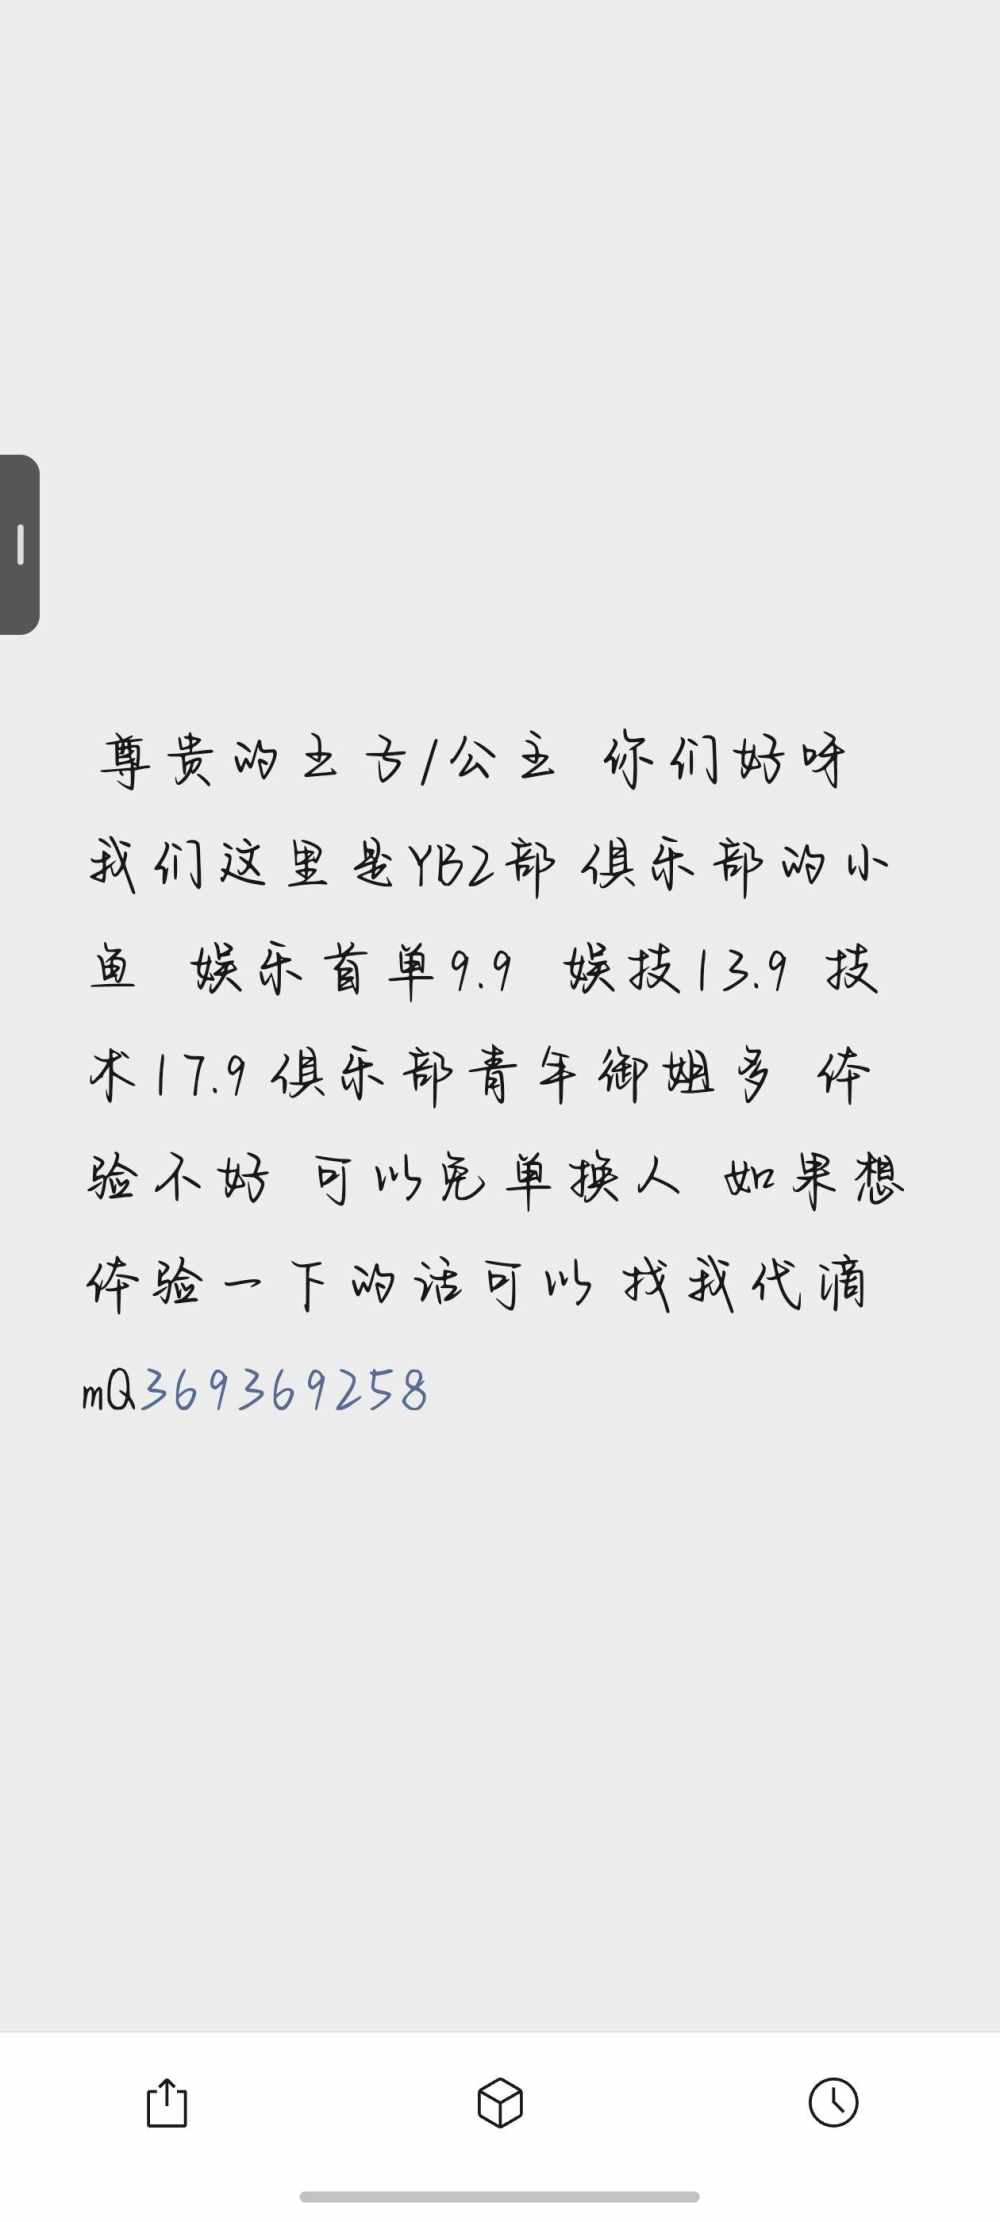 尊贵的土方/公主 你们好呀
我们这里是YB2部 俱乐部的小
鱼 娱乐首单9.9 娱技13.9 技
术17.9俱乐部青年御姐多 体
验不好 可以免单换人 如果想
体验一下的话可以 找我代滴
mQ369369258